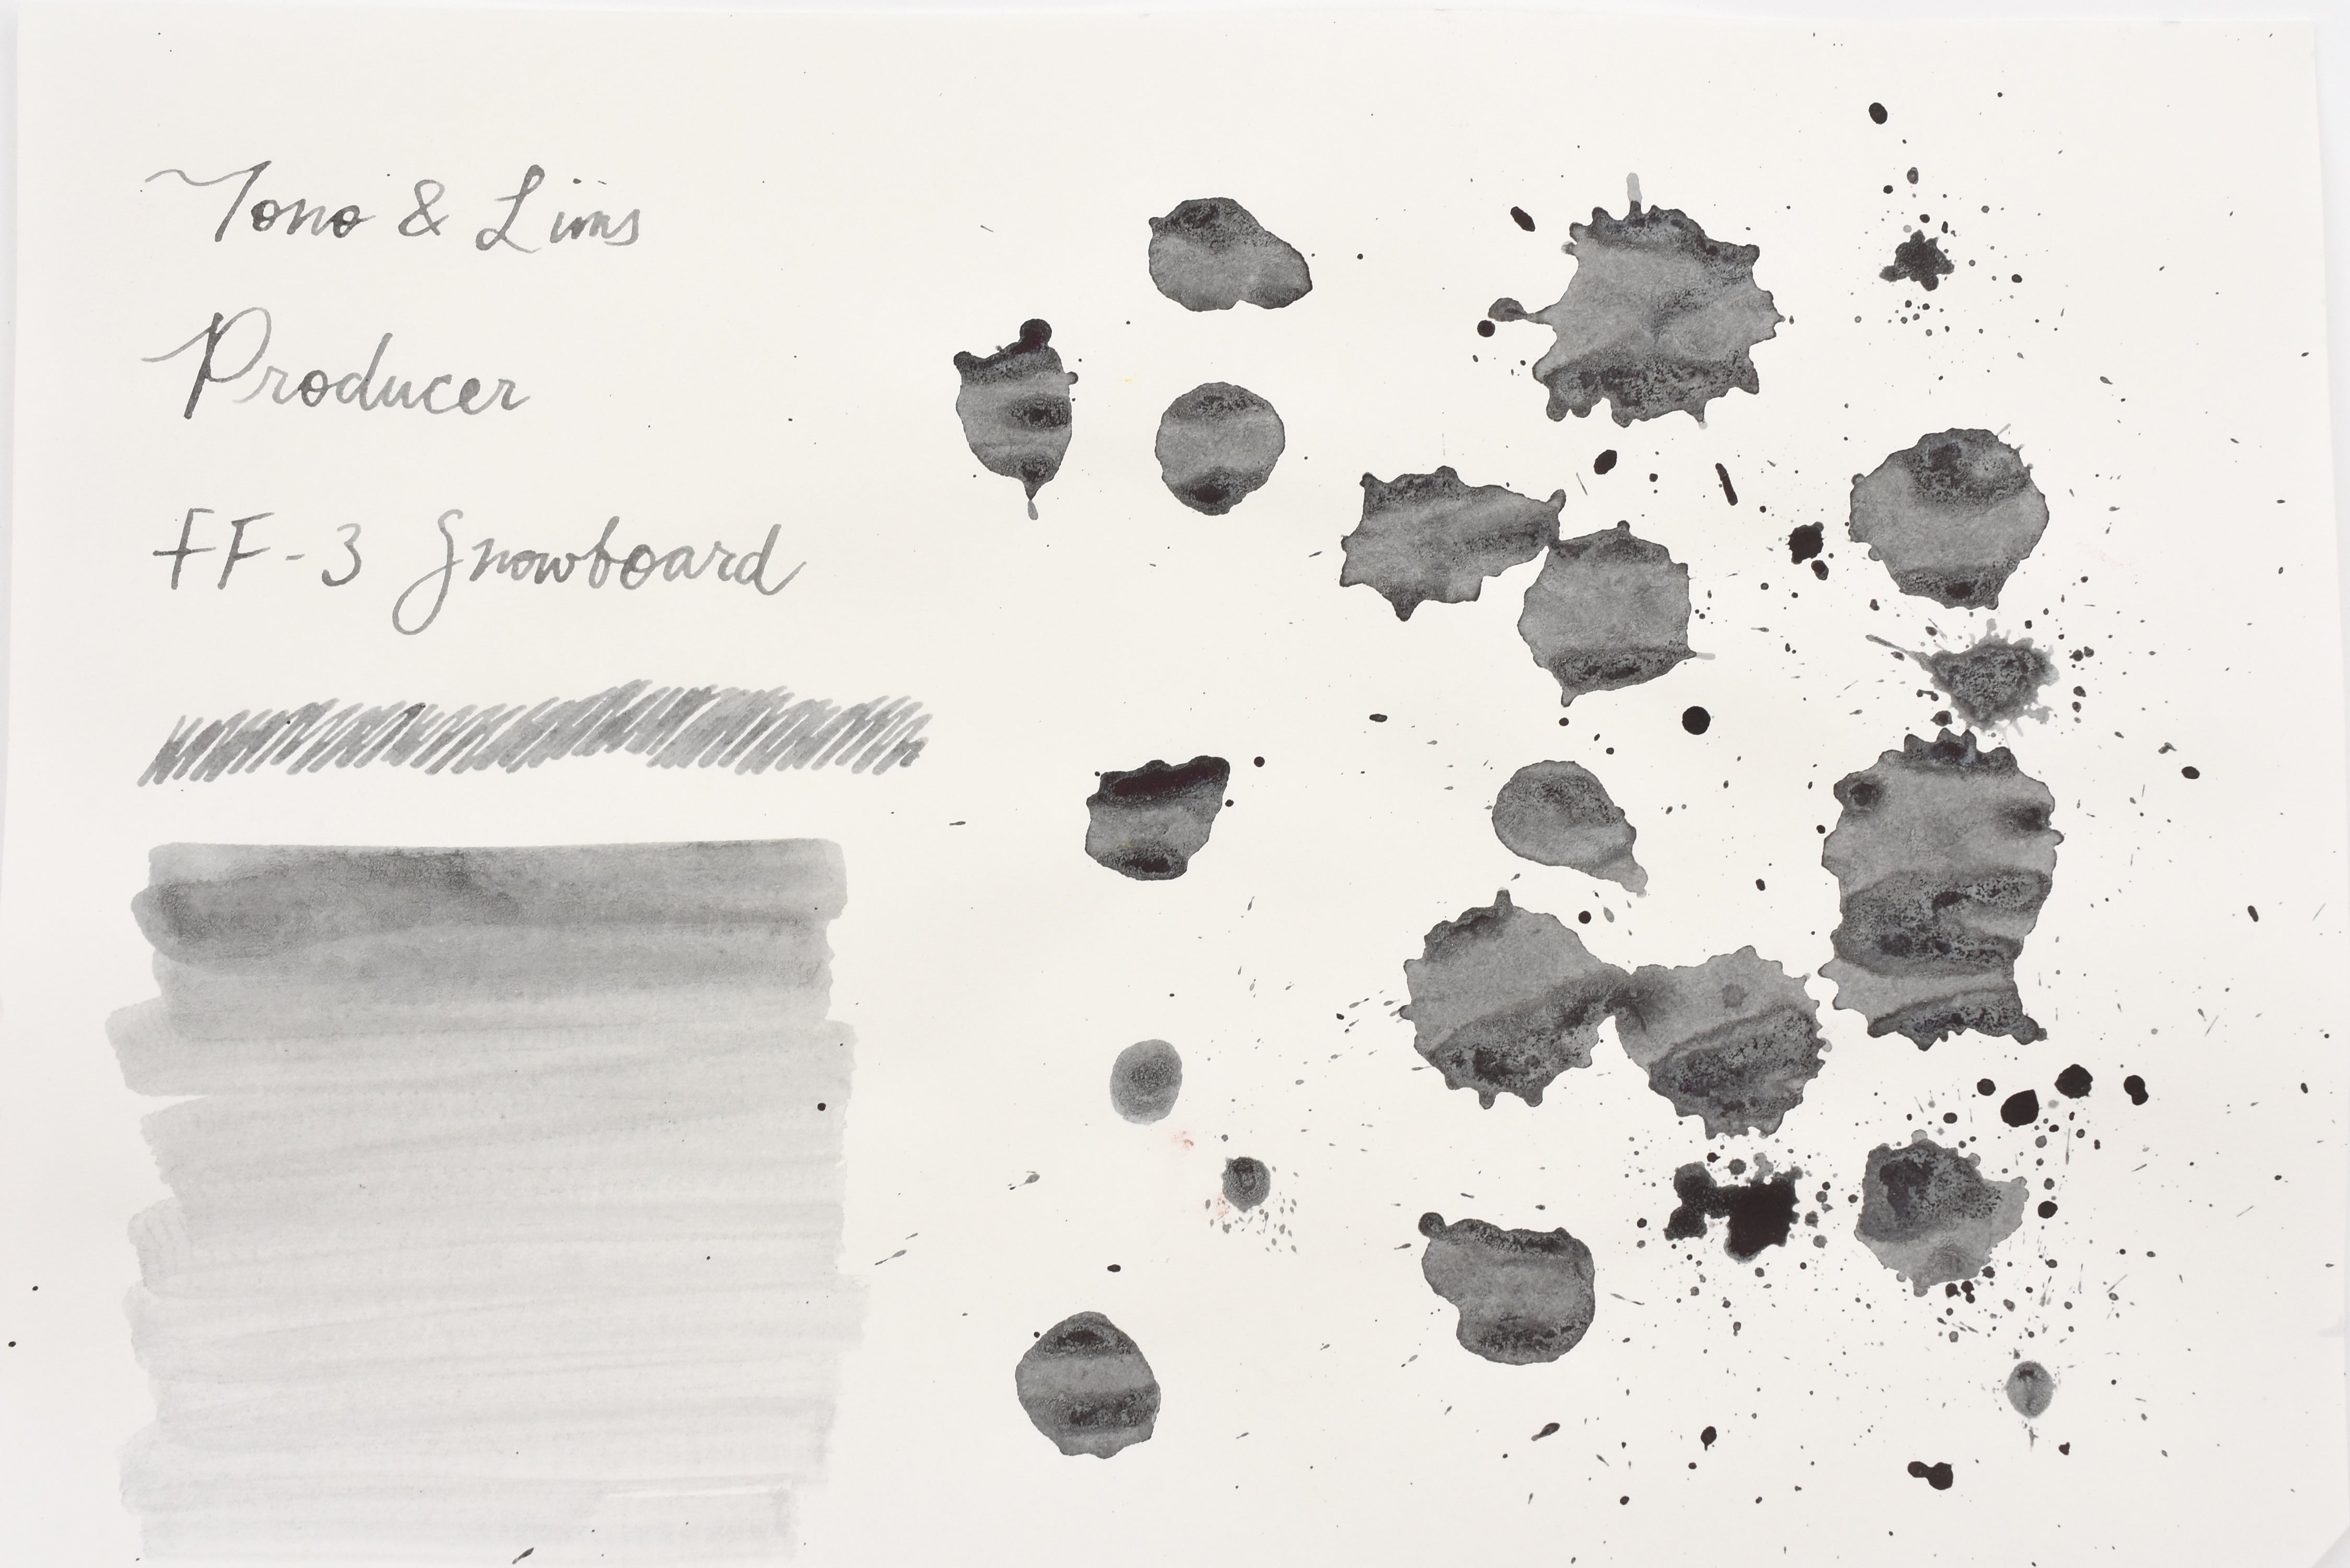 Tono & Lims
Producer
FF-3 Snowboard